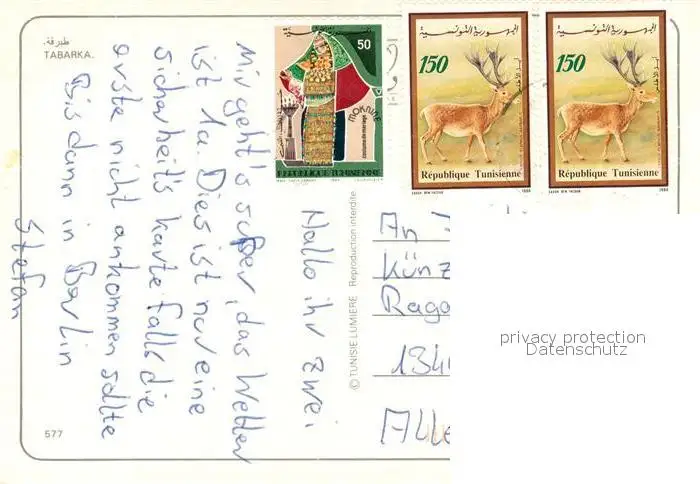 طبرقة.
TABARKA.
50
MOKNINE
costume de mariage
REPUBLIQUE TUNISIENNE
الجمهورية التونسية
150
République Tunisienne
1986
الجمهورية التونسية
150
République Tunisienne
1986
Hallo ihr zwei
Mir geht's super, das Wetter
ist 1a. Dies ist nur eine
Sicherheit's karte falls die
erste nicht ankommen sollte
Bis dann in Berlin
Stefan
© TUNISIE LUMIERE Reproduction interdite
An
Künz
Rag
134
Alle
577
privacy protection
Datenschutz